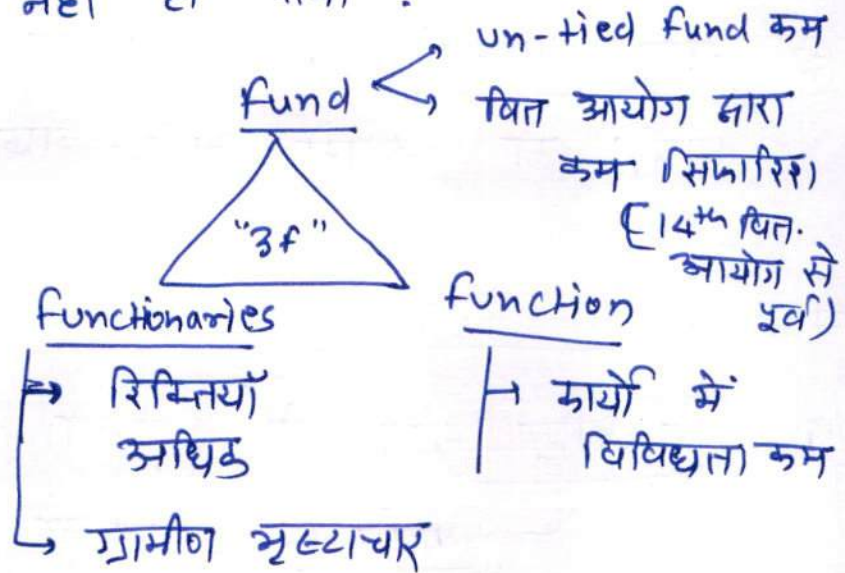 un-tied fund कम
fund
वित्त आयोग द्वारा
कम सिफारिश
(14th वित्त.
आयोग से
पूर्व)
"3f"
functionaries
रिक्तियाँ
अधिक
ग्रामीण भ्रष्टाचार
function
कार्यों में
विविधता कम